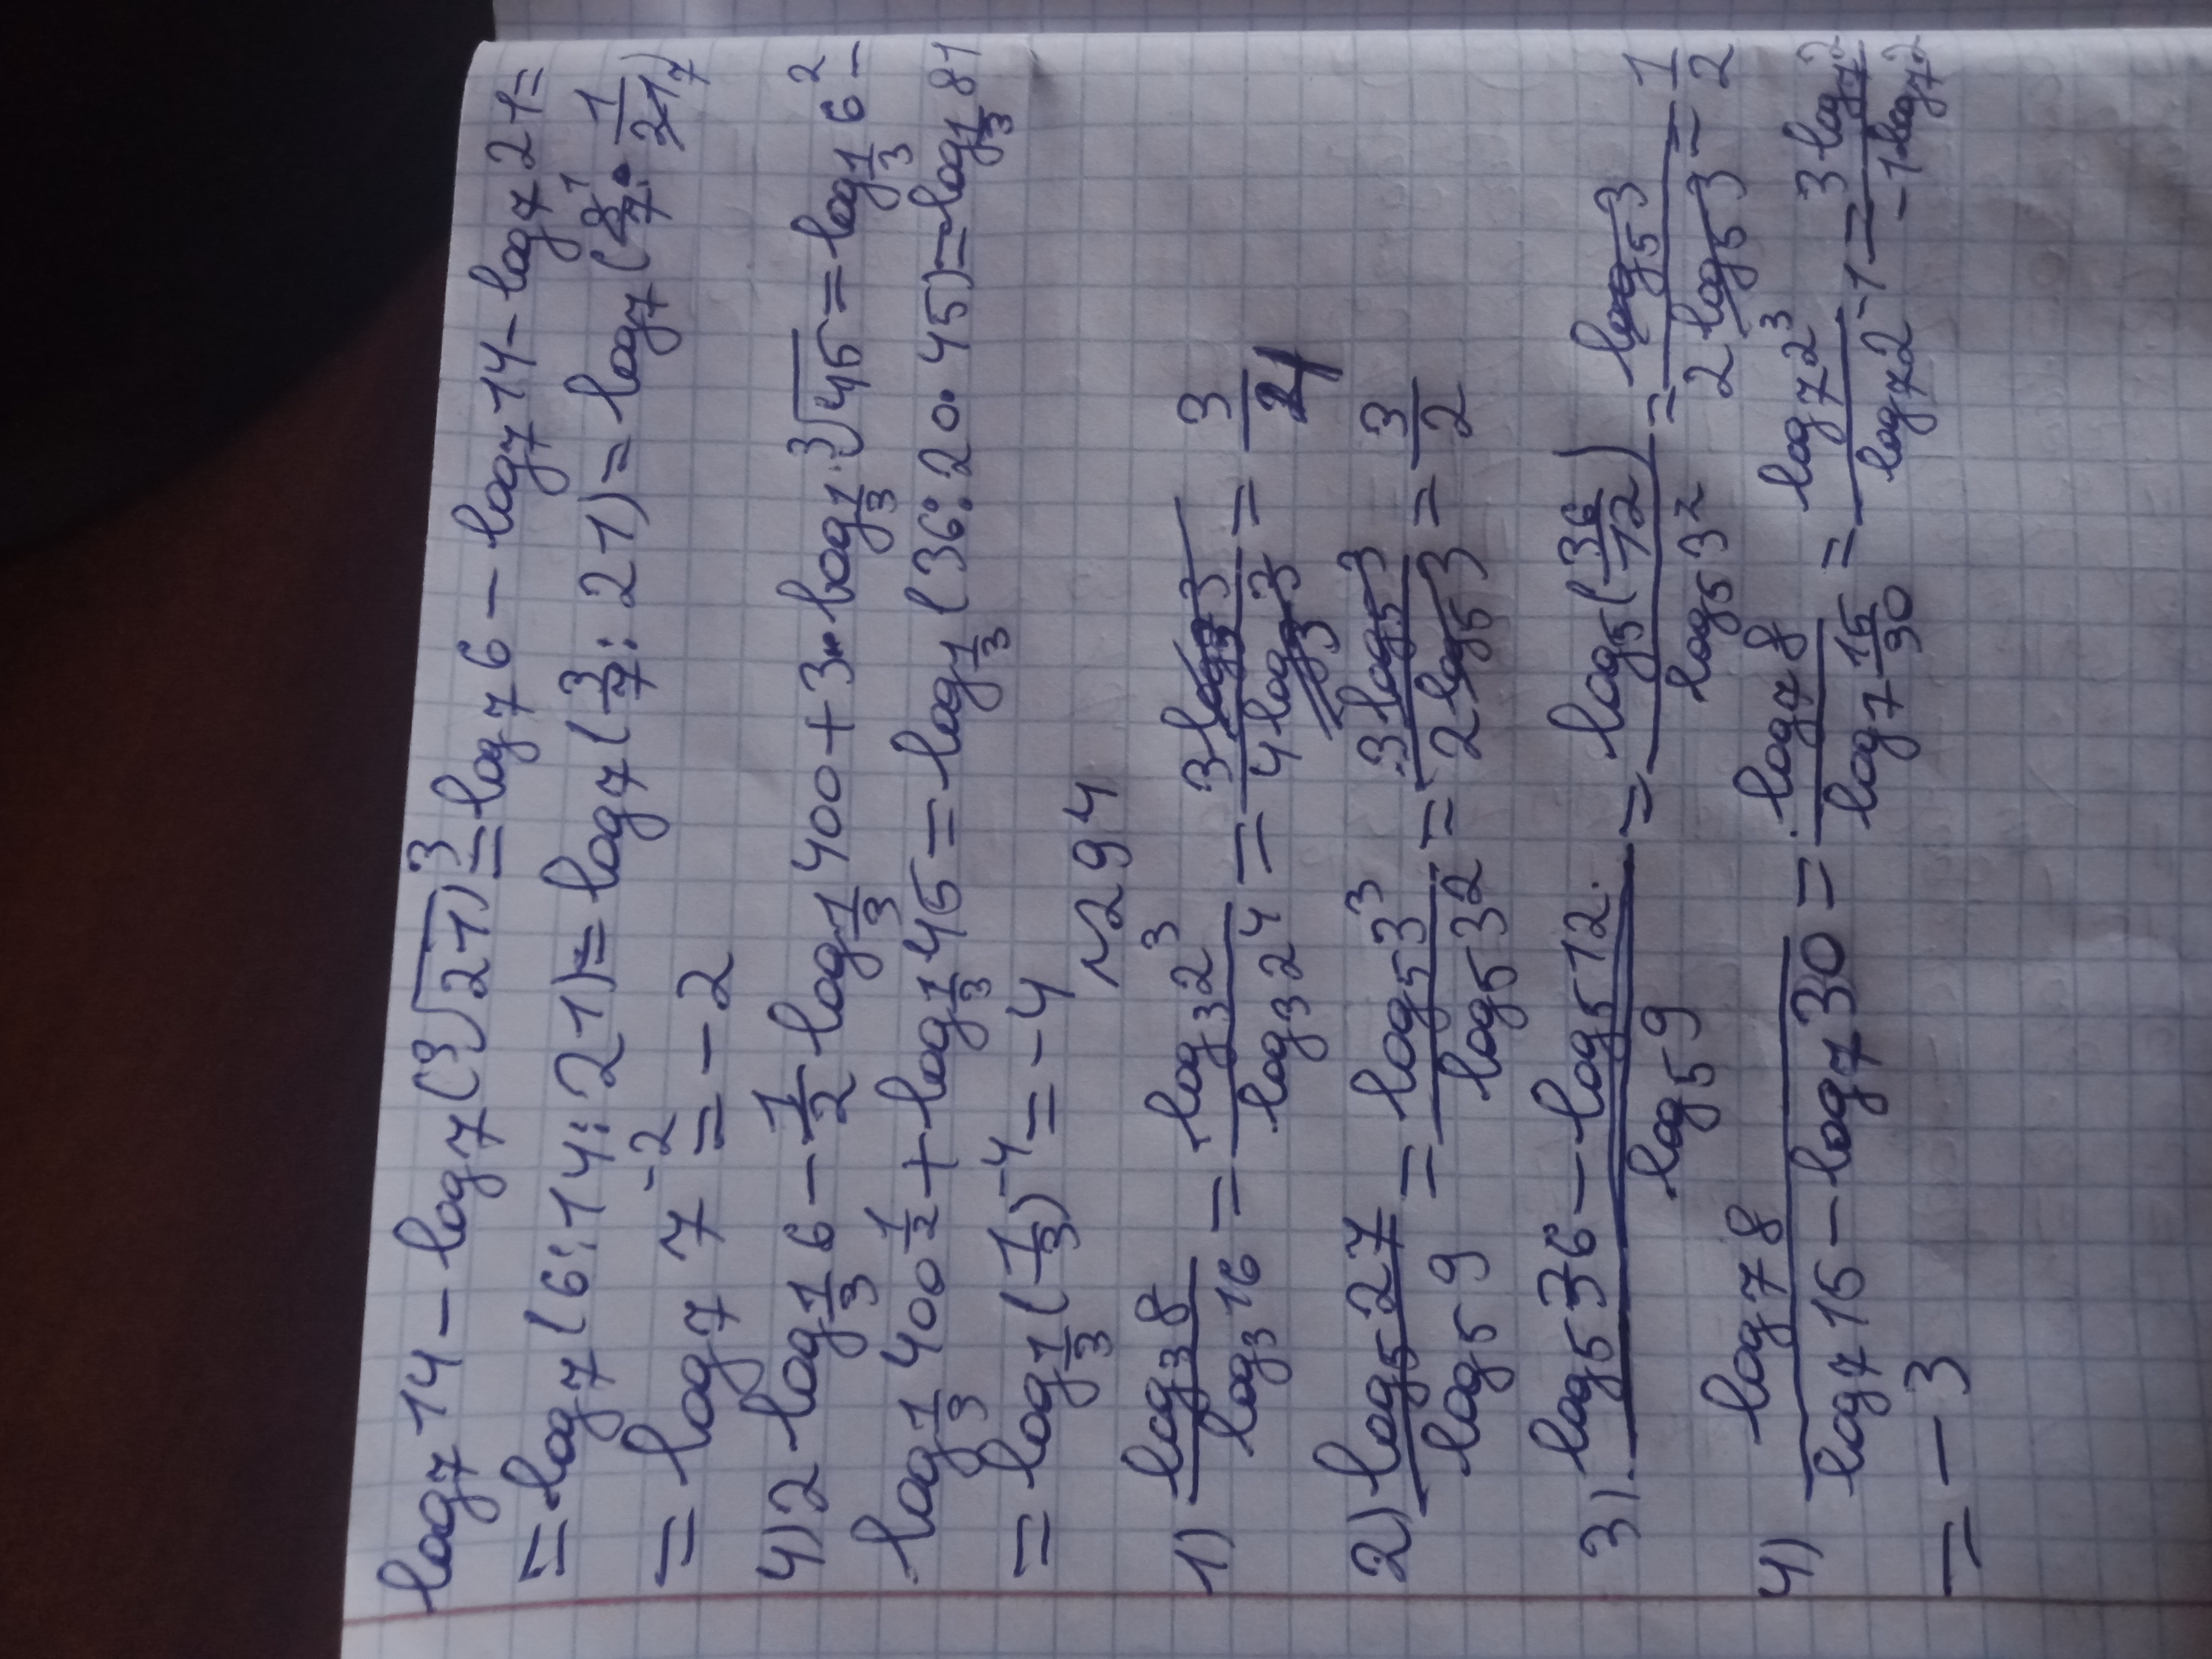 log₇14 − log₇(³√21)³ = log₇6 − log₇14 − log₇21 =
= log₇(6:14:21) = log₇(3/7 : 21) = log₇(3¹/7 · 1/21₇)
= log₇7⁻² = −2
4) 2·log_{1/3}6 − 1/2 log_{1/3}400 + 3·log_{1/3}³√45 = log_{1/3}6² −
log_{1/3}400^{1/2} + log_{1/3}45 = log_{1/3}(36:20·45) = log_{1/3}81
= log_{1/3}(1/3)⁻⁴ = −4
№294
1) log₃8/log₃16 = log₃2³/log₃2⁴ = 3log₃3/4log₃3 = 3/4
2) log₅27/log₅9 = log₅3³/log₅3² = 3log₅3/2log₅3 = 3/2
3) (log₅36 − log₅12)/log₅9 = log₅(36/12)/log₅3² = log₅3/2log₅3 = 1/2
4) log₇8/(log₇15 − log₇30) = log₇8/log₇(15/30) = log₇2³/log₇2⁻¹ = 3log₇2/−1log₇2
= −3